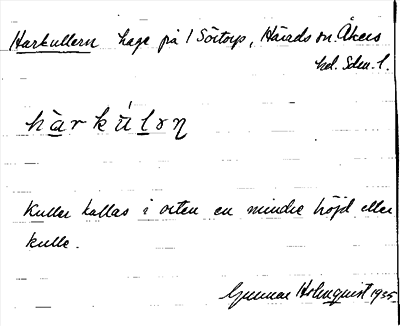 Harkullern hage på 1 Sörtorp, Härads sn. Åkers
hd. Sdm. l.
hàrkúlọṇ
Kuller kallas i orten en mindre höjd eller
kulle.
Gunnar Holmquist 1935